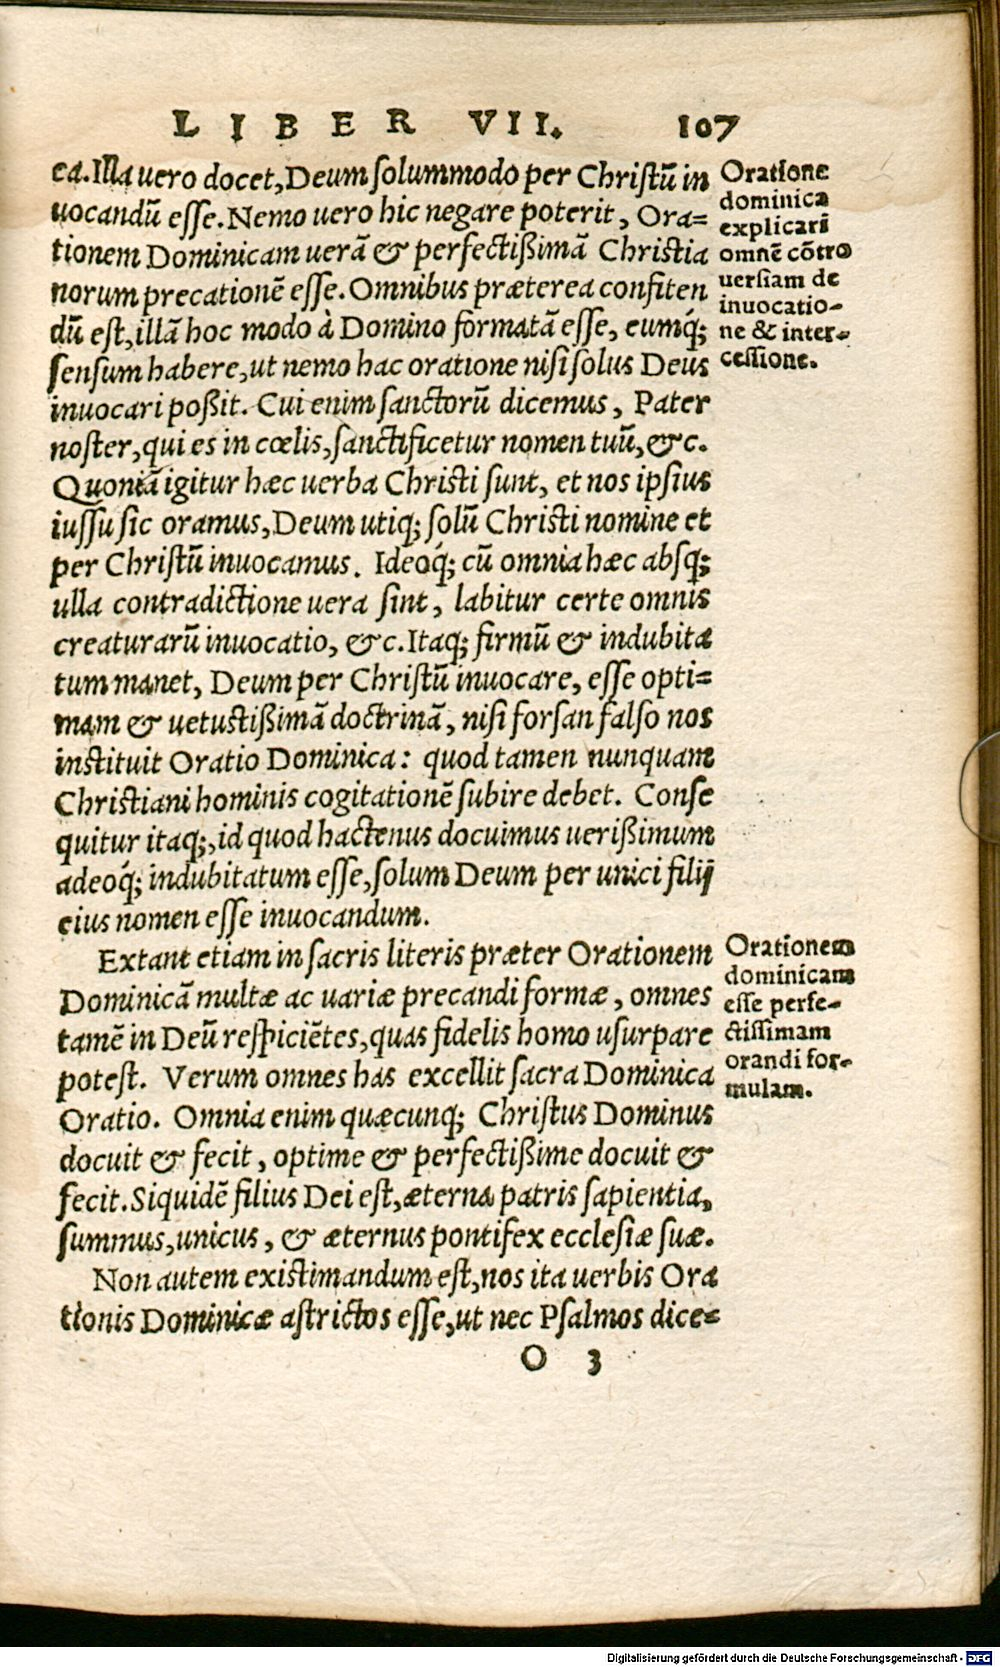 LIBER VII. 107
ea. Illa uero docet, Deum solummodo per Christũ in
uocandũ esse. Nemo uero hic negare poterit, Ora=
tionem Dominicam uerã & perfectißimã Christia
norum precationẽ esse. Omnibus præterea confiten
dũ est, illã hoc modo à Domino formatã esse, eumq́;
sensum habere, ut nemo hac oratione nisi solus Deus
inuocari poßit. Cui enim sanctorũ dicemus, Pater
noster, qui es in cœlis, sanctificetur nomen tuũ, &c.
Quoniã igitur hæc uerba Christi sunt, et nos ipsius
iussu sic oramus, Deum utiq; solũ Christi nomine et
per Christũ inuocamus. Ideoq́; cũ omnia hæc absq;
ulla contradictione uera sint, labitur certe omnis
creaturarũ inuocatio, &c. Itaq; firmũ & indubita
tum manet, Deum per Christũ inuocare, esse opti=
mam & uetustißimã doctrinã, nisi forsan falso nos
instituit Oratio Dominica: quod tamen nunquam
Christiani hominis cogitationẽ subire debet. Conse
quitur itaq;, id quod hactenus docuimus uerißimum
adeoq́; indubitatum esse, solum Deum per unici filij
eius nomen esse inuocandum.
Oratione
dominica
explicari
omnẽ cõtro
uersiam de
inuocatio-
ne & inter-
cessione.
Extant etiam in sacris literis præter Orationem
Dominicã multæ ac uariæ precandi formæ, omnes
tamẽ in Deũ respiciẽtes, quas fidelis homo usurpare
potest. Verum omnes has excellit sacra Dominica
Oratio. Omnia enim quæcunq; Christus Dominus
docuit & fecit, optime & perfectißime docuit &
fecit. Siquidẽ filius Dei est, æterna patris sapientia,
summus, unicus, & æternus pontifex ecclesiæ suæ.
Orationem
dominicam
esse perfe-
ctissimam
orandi for-
mulam.
Non autem existimandum est, nos ita uerbis Ora
tionis Dominicæ astrictos esse, ut nec Psalmos dice=
O 3
Digitalisierung gefördert durch die Deutsche Forschungsgemeinschaft - DFG